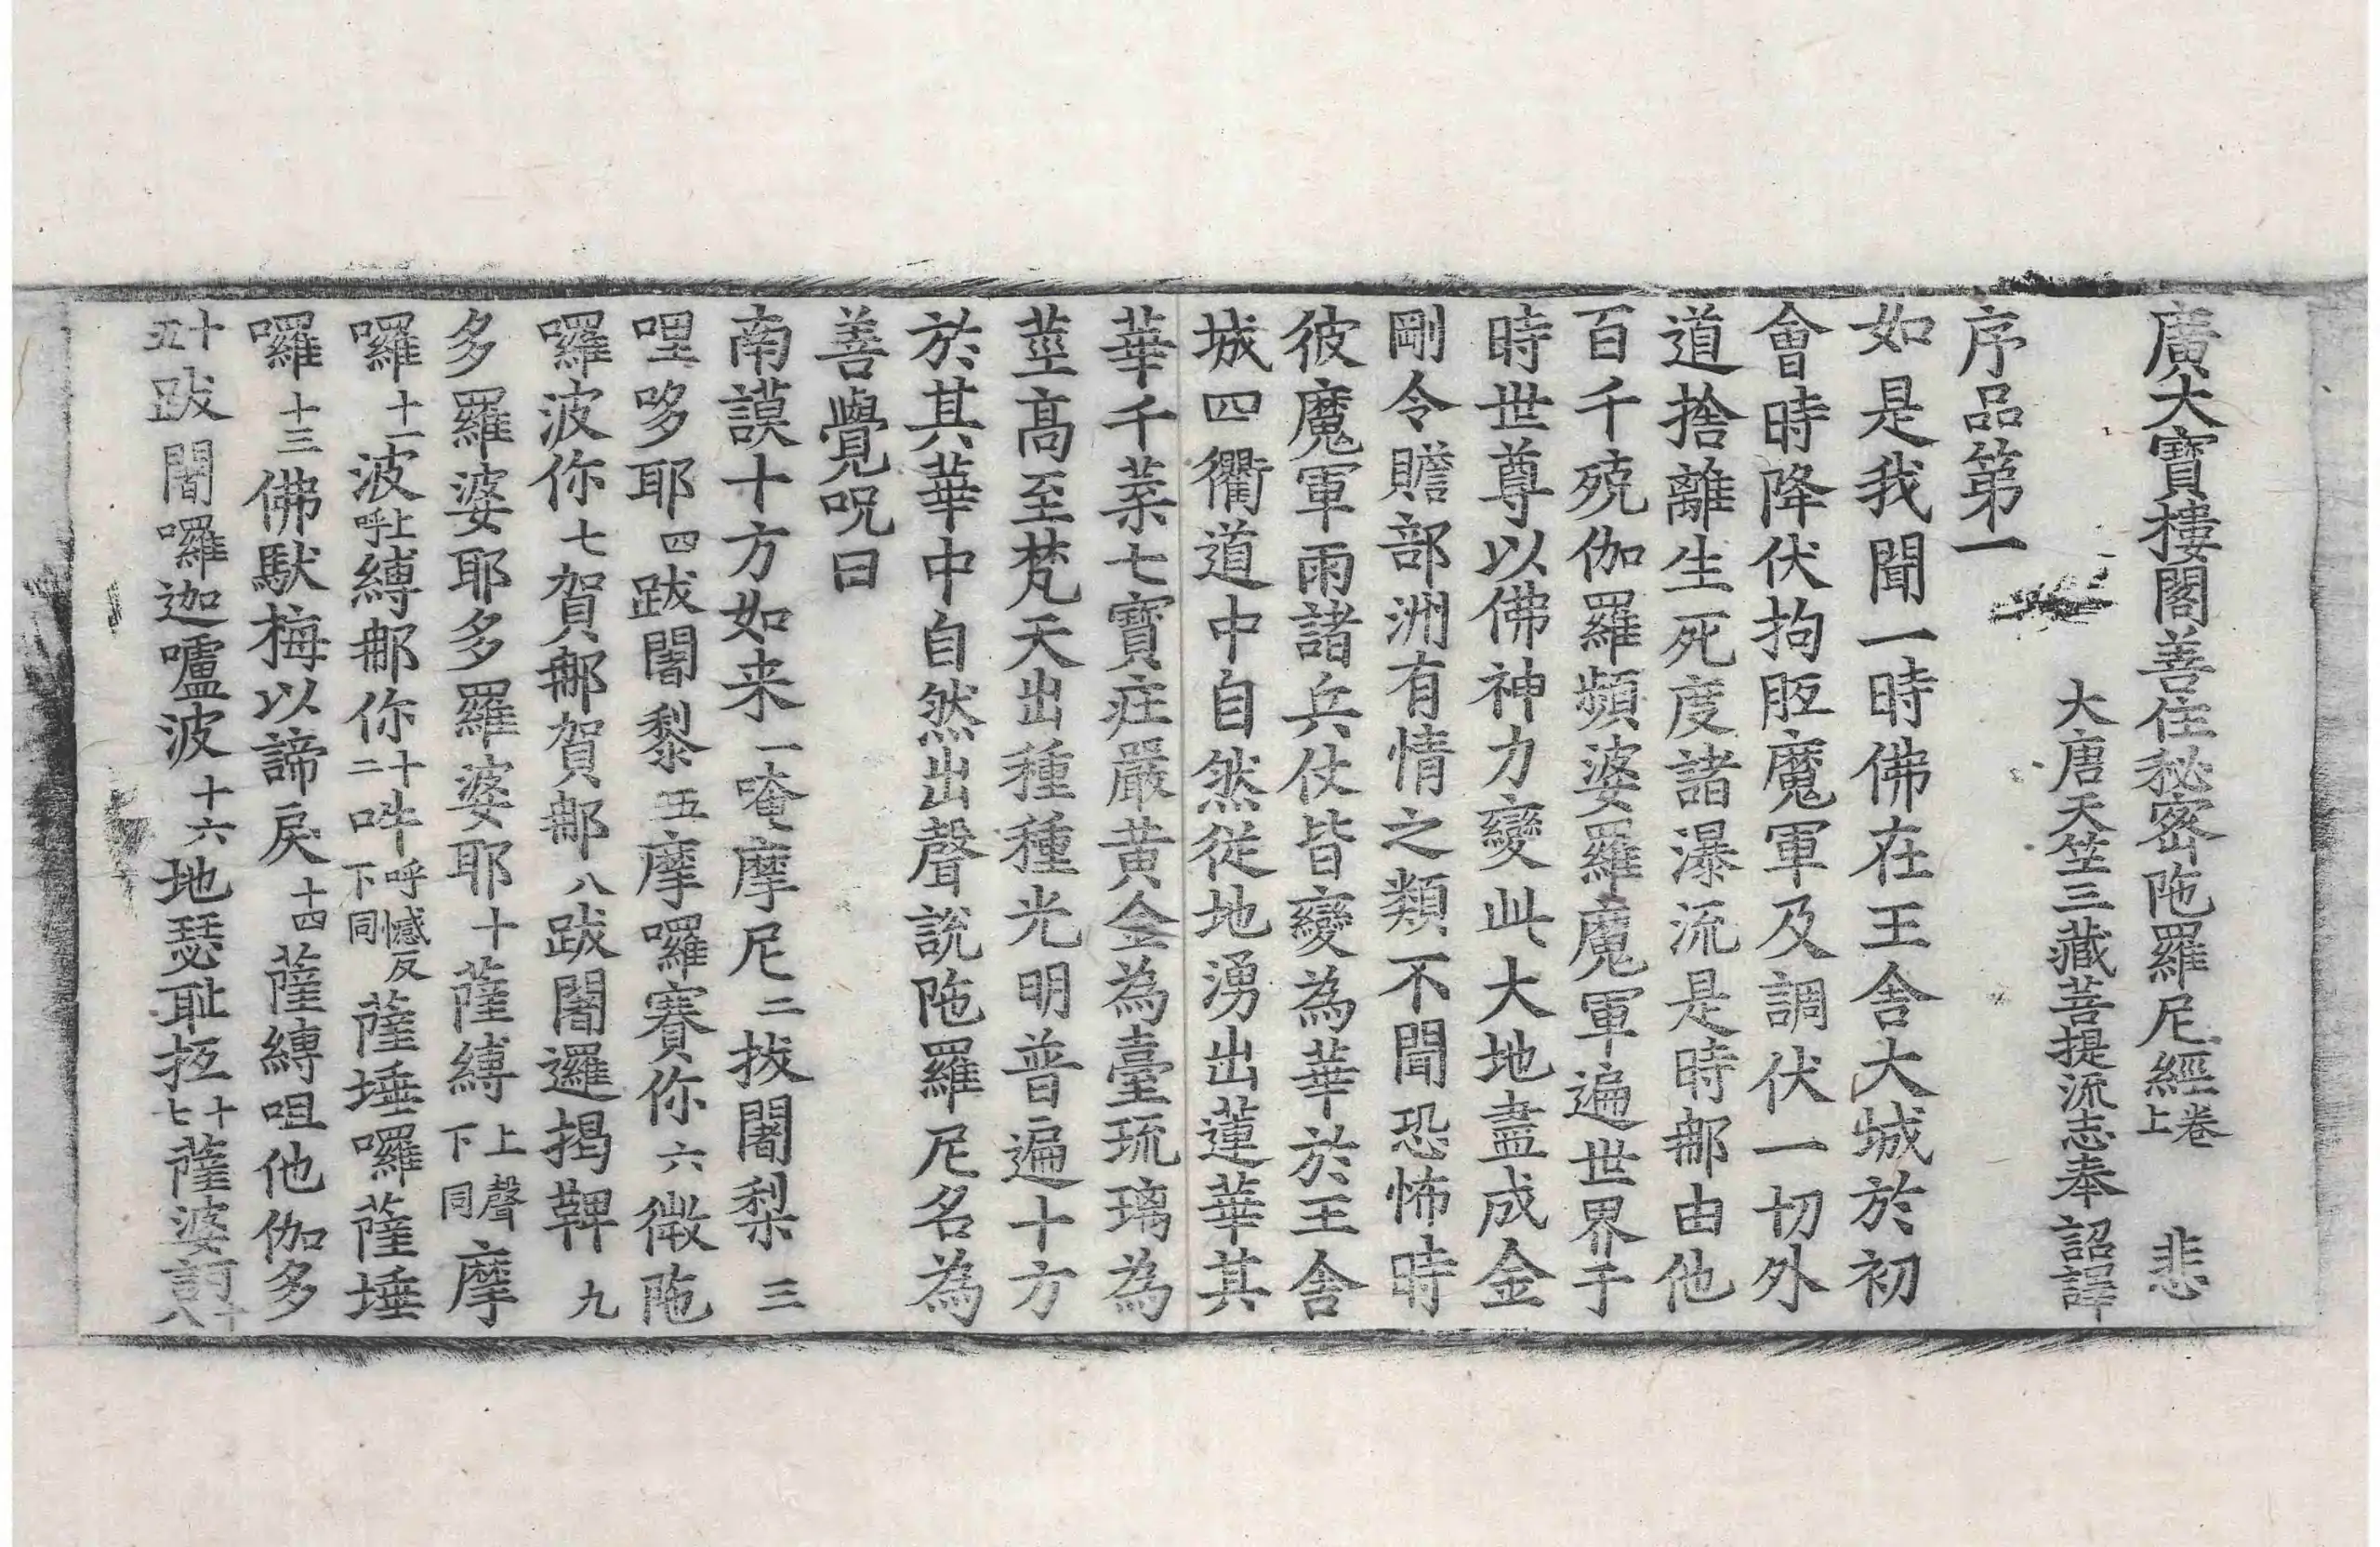 廣大寶樓閣善住秘密陁羅尼經卷上 悲
大唐天竺三藏菩提流志奉 詔譯
序品第一
如是我聞一時佛在王舍大城於初
會時降伏拘胝魔軍及調伏一切外
道捨離生死度諸瀑流是時那由他
百千殑伽羅頻婆羅魔軍遍世界于
時世尊以佛神力變此大地盡成金
剛令贍部洲有情之類不聞恐怖時
彼魔軍雨諸兵仗皆變為華於王舍
城四衢道中自然從地湧出蓮華其
華千葉七寶庄嚴黄金為臺琉璃為
莖高至梵天出種種光明普遍十方
於其華中自然出聲說陁羅尼名為
善覺呪曰
南謨十方如来一唵摩尼二拔闍梨三
哩哆耶四跋闍黎五摩囉賽你六微陁
囉波你七賀那賀那八跋闍邏揭鞞九
多羅婆耶多羅婆耶十薩縛上聲下同摩
囉十一波上呼縛那你十二吽呼憾反下同薩埵囉薩埵
囉十三佛馱梅以諦戾十四薩縛咀他伽多
十五跋闍囉迦嚧波十六地瑟耻抂十七薩婆訶十八